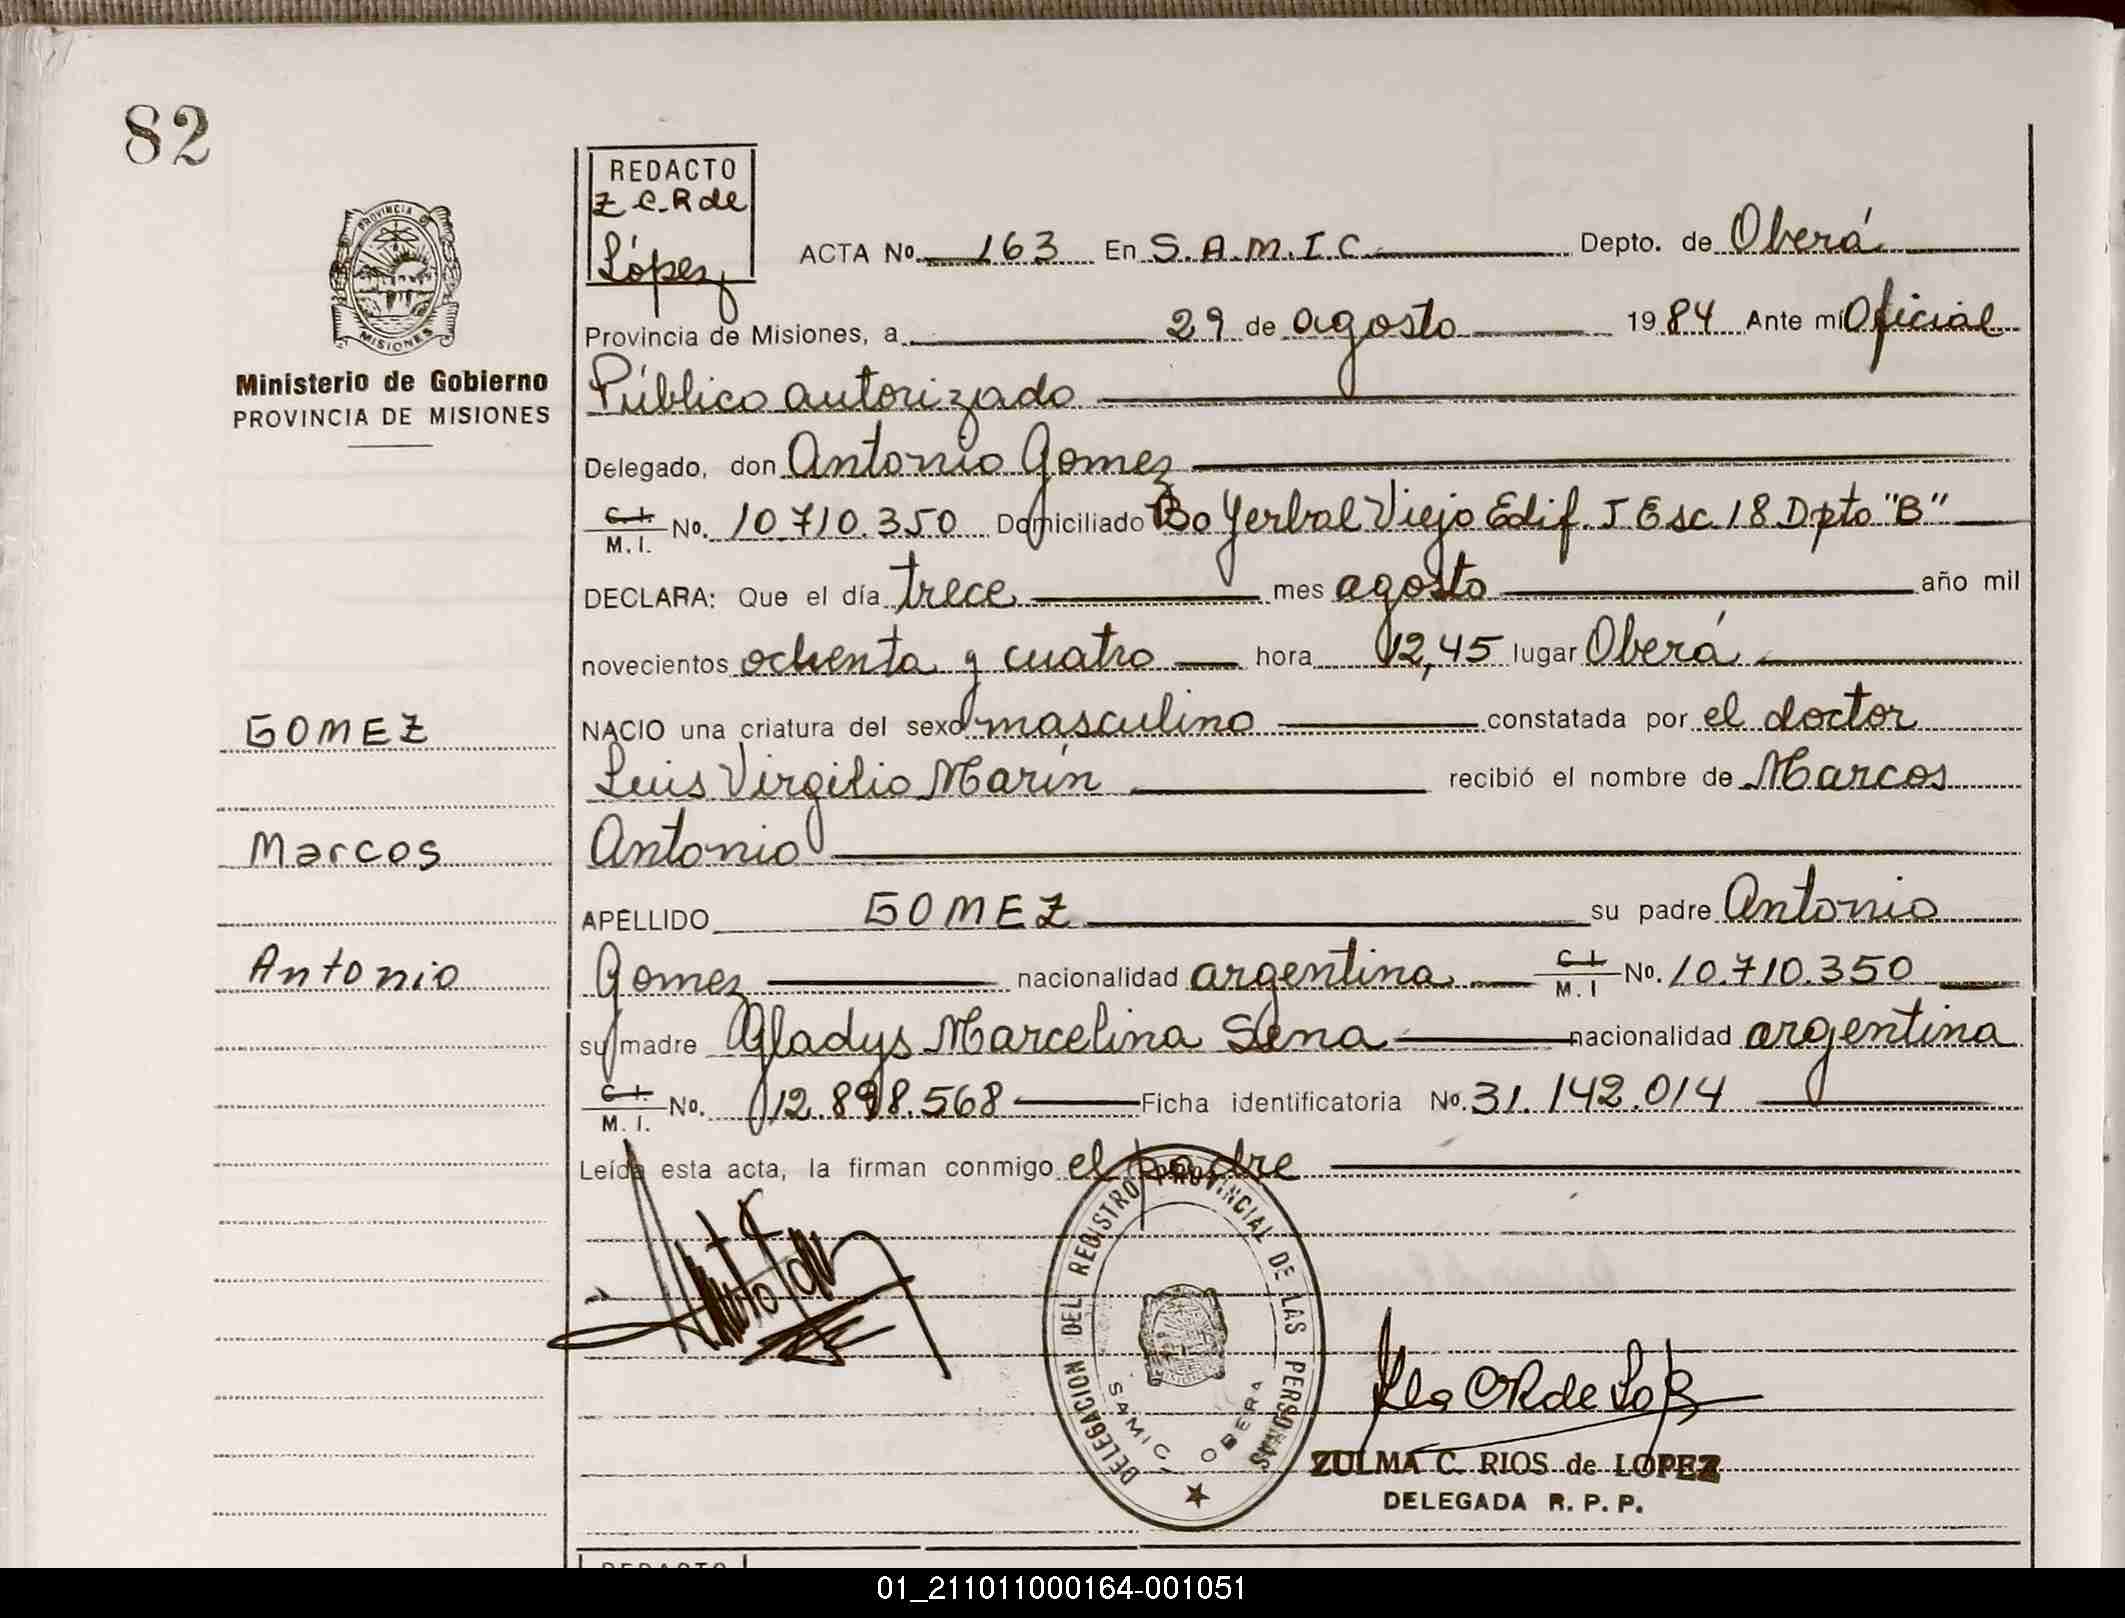 82
REDACTO
Z C. R de
López
PROVINCIA DE
MISIONES
Ministerio de Gobierno
PROVINCIA DE MISIONES
ACTA No. 163 En S.A.M.I.C. Depto. de Oberá
Provincia de Misiones, a 29 de agosto 1984 Ante mí Oficial
Público autorizado
Delegado, don Antonio Gomez
C. I. M. I. No. 10.710.350 Domiciliado Bo Yerbal Viejo Edif. J Esc. 18 Dpto "B"
DECLARA: Que el día trece mes agosto año mil
novecientos ochenta y cuatro hora 12,45 lugar Oberá
GOMEZ
NACIO una criatura del sexo masculino constatada por el doctor
Luis Virgilio Marín recibió el nombre de Marcos
Marcos
Antonio
APELLIDO GOMEZ su padre Antonio
Antonio
Gomez nacionalidad argentina C. I. M. I No. 10.710.350
su madre Gladys Marcelina Sena nacionalidad argentina
C. I. M. I. No. 12.898.568 Ficha identificatoria No. 31.142.014
Leída esta acta, la firman conmigo el padre
DELEGACION DEL REGISTRO PROVINCIAL DE LAS PERSONAS
SAMIC. OBERA
ZULMA C. RIOS de LOPEZ
DELEGADA R. P. P.
REDACTO
01_211011000164-001051